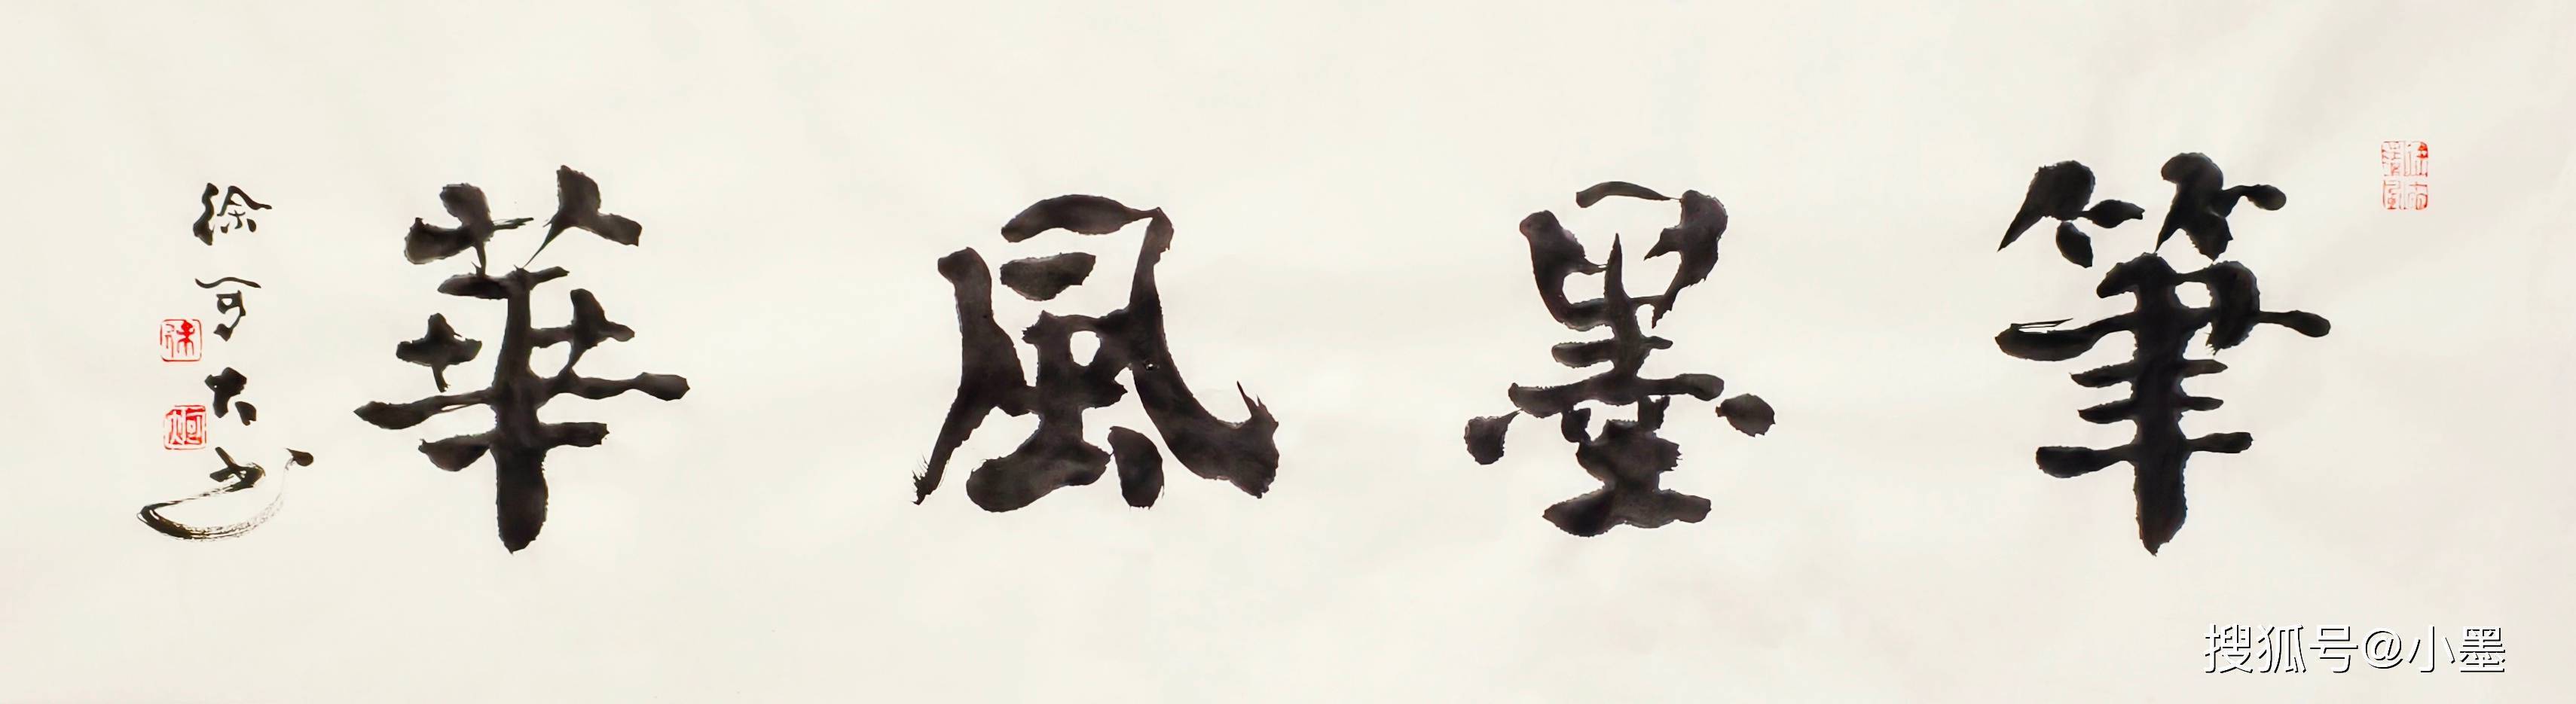 筆墨風華
徐可大书
搜狐号@小墨